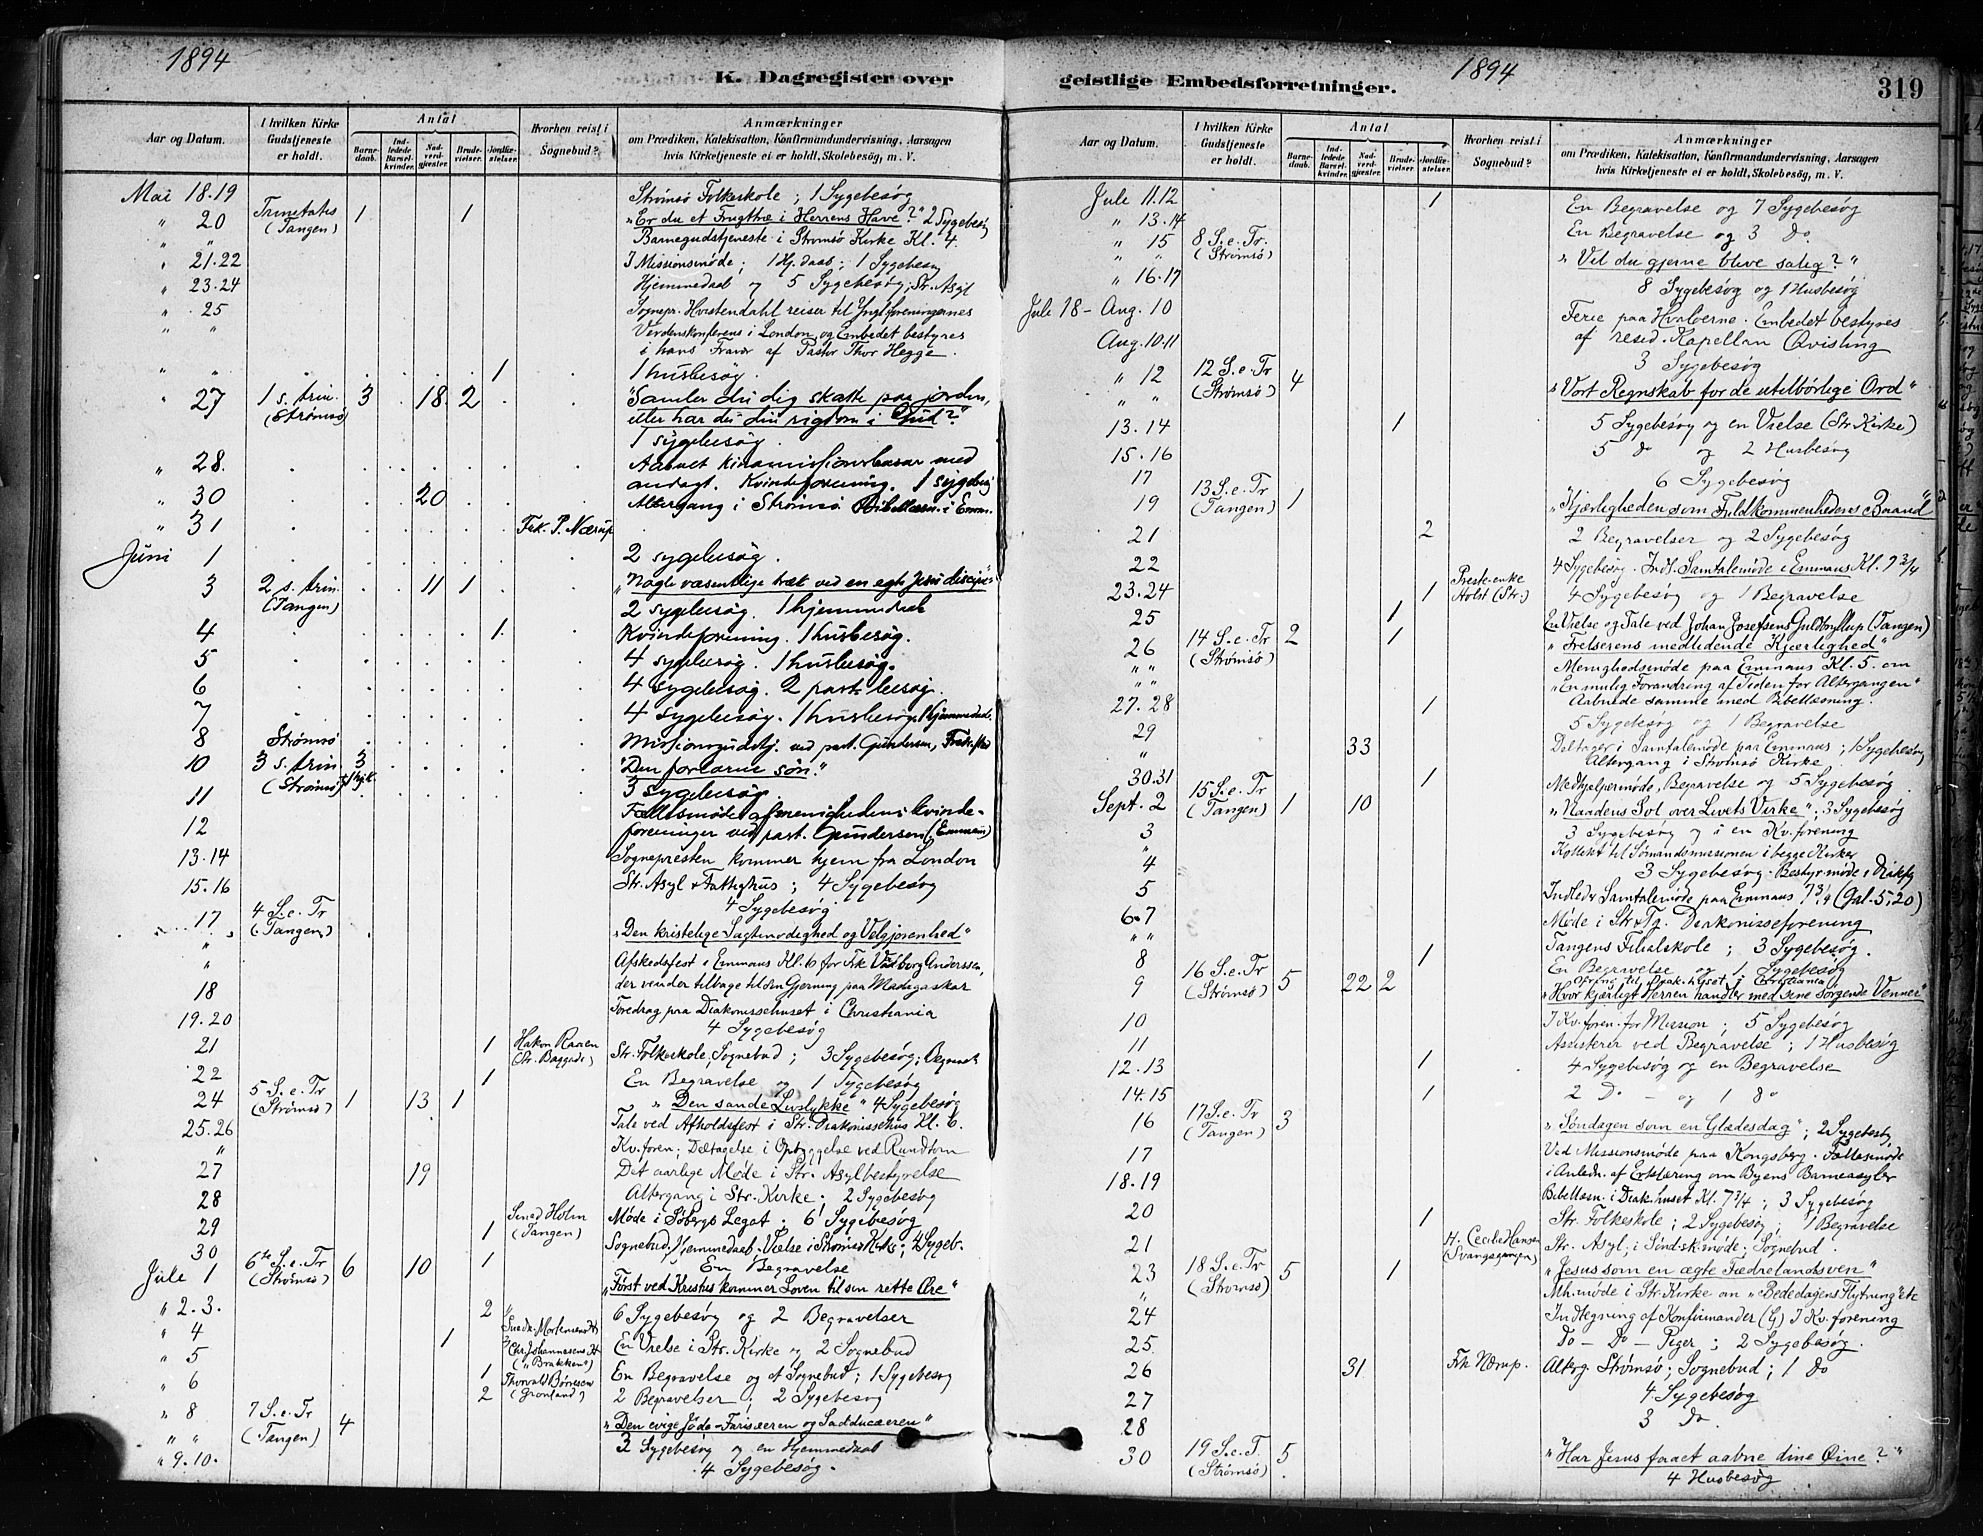 1894
K. Dagregister over
Aar og Datum.
I hvilken Kirke Gudstjeneste er holdt.
Antal
Barne-daab.
Ind-ledede Barsel-kvinder.
Nad-verd-gjester.
Brude-vielser.
Jordfæ-stelser.
Hvorhen reist i Sognebud?
Anmærkninger
om Prædiken, Katekisation, Konfirmandundervisning, Aarsagen
hvis Kirketjeneste ei er holdt, Skolebesøg, m. V.
Mai 18.19 Strømsø Folkeskole; 1 Sygebesøg
" 20 Trinitatis (Tangen) 1 1 "Er du et Frugttræ i Herrens Have?" 2 Sygebesøg
" " Barnegudstjeneste i Strømsø Kirke Kl. 4.
" 21.22 I Missionsmøde; 1 Hj.daab; 1 Sygebesøg
" 23.24 Hjemmedaab og 5 Sygebesøg; Str. Asyl
" 25 Sognepr. Hvistendahl reiser til Ynglforeningernes
" " Verdenskonferens i London, og Embedet bestyres
i hans Fravær af Pastor Thor Hegge.
" " 1 1 husbesøg.
" 27 1 s. trin. (Strømsø) 3 18 2 "Samler du dig skatte paa jorden,
eller har du din rigdom i Gud?"
1 sygebesøg.
" 28. Aabnet kinamissionsbasar med
andagt. Kvindeforening. 1 sygebesøg
" 30 20 Altergang i Strømsø. Bibellæsn. i Emm.
" 31 Frk. P. Nærup
Juni 1 2 sygebesøg.
3 2 s. trin. (Tangen) 11 1 "Nogle væsentlige træk ved en egte Jesu discipel"
2 sygebesøg. 1 hjemmedaab
4 1. Kvindeforening. 1 husbesøg.
5 4 sygebesøg. 1 husbesøg.
6 4 sygebesøg. 2 past. besøg.
7 4 sygebesøg. 1 husbesøg. 1 hjemmedaab.
8 Strømsø Missionsgudstj. ved past. Gundersen, Fredrikstad
10 3 s. trin. (Strømsø) 3 "Den forlorne søn."
11 3 sygebesøg.
12 Fællesmøde af menighedens kvinde-
foreninger ved past. Gundersen (Emmaus)
13.14 Sognepresten kommer hjem fra London
15.16 Str. Asyl & Fattighus; 4 Sygebesøg
4 Sygebesøg
17 4 S. e. Tr (Tangen) "Den kristelige Sagtmodighed og Velgjørenhed"
" Afskedsfest i Emmaus Kl. 6 for Frk Valborg Anderssen,
" der vender tilbage til sin Gjerning paa Madagaskar
18 Foredrag paa Diakonissehuset i Christiania
19.20 4 Sygebesøg
21 1 Hakon Raaen (Str. Baggade) Str. Folkeskole, Sognebud; 3 Sygebesøg; Begravels
22 1 En Begravelse og 1 Sygebesøg
24 5 S. e. Tr (Strømsø) 1 13 1 "Den sande Livslykke" 4 Sygebesøg
25.26 Tale ved Afholdsfest i Str. Diakonissehus Kl. 6.
" Kv.foren; Deltagelse i Opbyggelse ved Rundtom
27 19 Det aarlige Møde i Str. Asylbestyrelse
28 Altergang i Str. Kirke; 2 Sygebesøg
29 1 (Tangen) Møde i Søbergs Legat; 6 Sygebesøg
30 Sognebud. Hjemmedaab. Vielse i Strømsø Kirke; 4 Sygeb.
Jule 1 6te S. e. Tr (Strømsø) 6 10 1 En Begravelse
"Først ved Kristus kommer Loven til sin rette Ære"
" 2.3. 2 6 Sygebesøg og 2 Begravelser
" 4 1 Chr. Johannesens H ("Brakken") En Vielse i Str. Kirke og 2 Sognebud
" 5 1 Thorvald Børresen (Grønland) En Begravelse og et Sognebud; 1 Sygebesøg
" 6 2 2 Begravelser; 2 Sygebesøg
" 8 7 S. e. Tr (Tangen) 4 "Den evige Jøde-Farisæeren og Sadducæeren"
" " 3 Sygebesøg og en Hjemmedaab
" 9.10. 4 Sygebesøg.
1894
319
geistlige Embedsforretninger.
Aar og Datum.
I hvilken Kirke Gudstjeneste er holdt.
Antal
Barne-daab.
Ind-ledede Barsel-kvinder.
Nad-verd-gjester.
Brude-vielser.
Jordfæ-stelser.
Hvorhen reist i Sognebud?
Anmærkninger
om Prædiken, Katekisation, Konfirmandundervisning, Aarsagen
hvis Kirketjeneste ei er holdt, Skolebesøg, m. V.
Jule 11.12 1 En Begravelse og 7 Sygebesøg
" 13.14 En Begravelse og 3 Do
" 15 8 S. e. Tr. (Strømsø) "Vil du gjerne blive salig?"
" 16.17 8 Sygebesøg og 1 Husbesøg
Jule 18 - Aug. 10 Ferie paa Hvaløerne. Embedet bestyres
af resid. Kapellan Qvisling
Aug. 10.11 3 Sygebesøg
" 12 12 S. e. Tr (Strømsø) 4 "Vort Regnskab for de utilbørlige Ord"
13.14 1 5 Sygebesøg og en Vielse (Str. Kirke)
15.16 5 Do og 2 Husbesøg
17 6 Sygebesøg
19 13 S. e. Tr (Tangen) 1 "Kjærligheden som Fuldkommenhedens Baand"
21 2 2 Begravelser og 2 Sygebesøg
22 4 Sygebesøg. Indl. Samtalemøde i Emmaus Kl. 7 3/4
23.24 1 Preste-enke Holst (Str.) 4 Sygebesøg og 1 Begravelse
25 1 En Vielse og Tale ved Johan Josefsens Guldbryllup (Tangen)
26 14 S. e. Tr (Strømsø) 2 1 "Frelserens medlidende Kjærlighed"
" " Menighedsmøde paa Emmaus Kl. 5. om
" " "En mulig Forandring af Tiden for Altergangen"
Aabnede samme med Bibellæsning.
27.28 1 5 Sygebesøg og 1 Begravelse
29 Deltager i Samtalemøde paa Emmaus; 1 Sygebesøg
" 33 Altergang i Strømsø Kirke
30.31 1 Medhjelpermøde, Begravelse og 5 Sygebesøg
Sept. 2 15 S. e. Tr (Tangen) 1 10 "Naadens Sol over Livets Virke"; 3 Sygebesøg
3 3 Sygebesøg og i en Kv.forening
" Kollekt til Sømandsmissionen i begge Kirker
4 3 Sygebesøg. Bestyr.møde i Diakfg
5 Indleder Samtalemøde paa Emmaus 7 3/4 (Gal. 5,20)
6.7 Møde i Str & Tg. Diakonisseforening
" " Tangens Filialskole; 3 Sygebesøg.
8 1 En Begravelse og 1 Sygebesøg
Ofring til Diak.huset i Cristiania
9 16 S. e. Tr (Strømsø) 5 22 2 "Hvor kjærligt Herren handler med sine sørgende Venner"
10 I Kv.foren. for Mission; 5 Sygebesøg
11 Assisterer ved Begravelse; 1 Husbesøg
12.13 1 4 Sygebesøg og en Begravelse
14.15 1 2 Do - og 1 Do
16 17 S. e. Tr (Tangen) 3 "Søndagen som en Glædesdag"; 2 Sygebesøg
17 Ved Missionsmøde paa Kongsberg. Fællesmøde
18.19 i Anledn. af Erklæring om Byens Barneasyler
Bibellæsn. i Diak.huset Kl. 7 3/4; 3 Sygebesøg
20 1 Str. Folkeskole; 2 Sygebesøg; 1 Begravelse
21 H. Cecilie Hansen (Svangsgangen) Str. Asyl; i Sindsk.møde; Sognebud.
23 18 S. e. Tr (Strømsø) 5 1 "Jesus som en ægte Fædrelandsven"
" Mh.møde i Str. Kirke om "Bededagens Flytning" etc
24 Indtegning af Konfirmander (G) I Kv.forening
25 Do - Do - Piger; 2 Sygebesøg.
26 31 Frk Nærup. Alterg. Strømsø; Sognebud; 1 Do
27 4 Sygebesøg
28 3 Do.
30 19 S. e. T. (Strømsø) 5 "Har Jesus faaet aabne dine Øine?"
4 Husbesøg